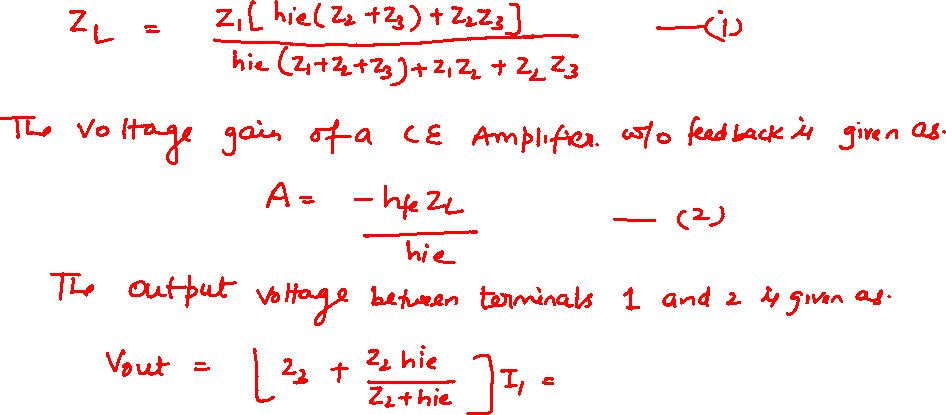 Z_L = Z₁[hie(Z₂+Z₃)+Z₂Z₃] / hie(Z₁+Z₂+Z₃)+Z₁Z₂+Z₂Z₃ —(i)
The Voltage gain of a CE Amplifier. w/o feedback is given as.
A = -hfe Z_L / hie — (2)
The output voltage between terminals 1 and 2 is given as.
Vout = [Z₃ + Z₂ hie / Z₂+hie] I₁ =